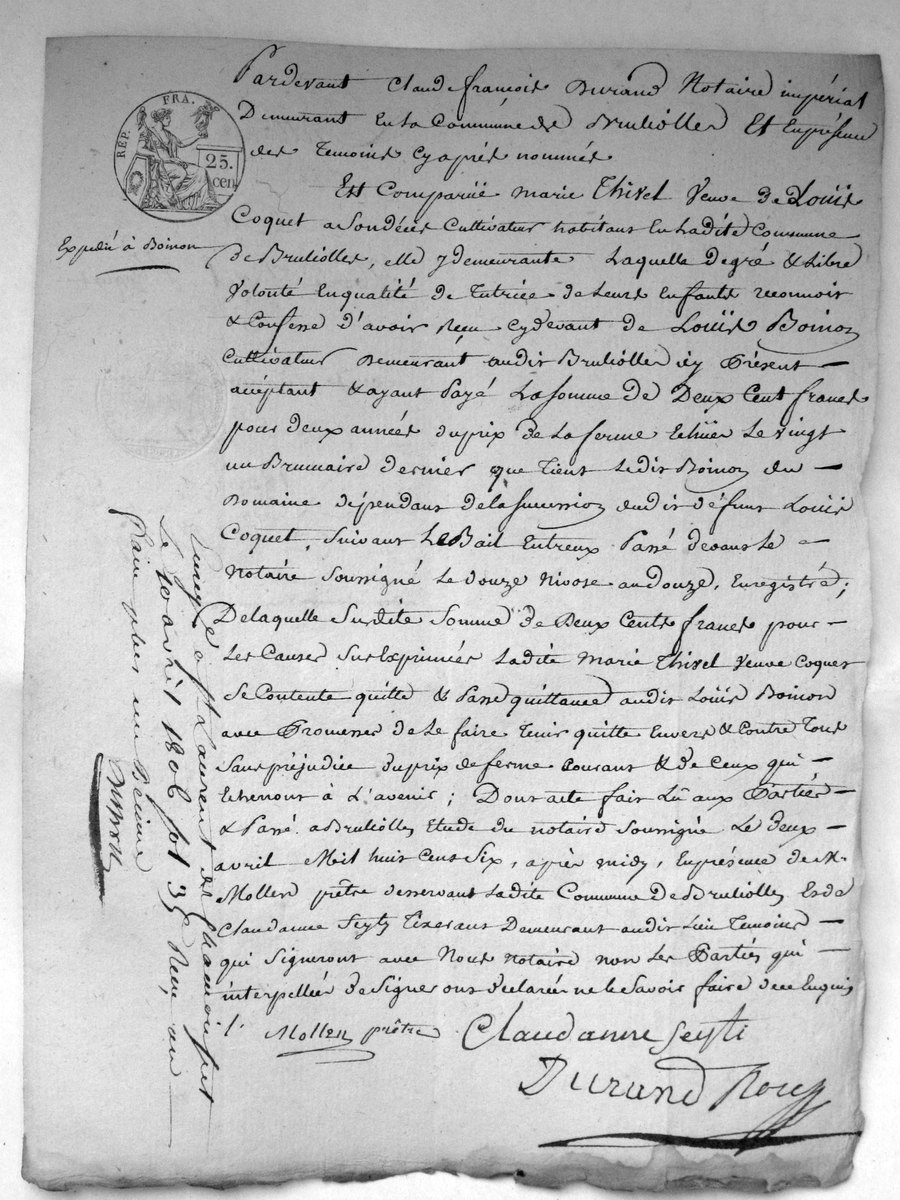 Pardevant Claude françois Durand Notaire impérial
Demeurant En la Commune de Bruliolles Et En présence
des Temoins Cy après nommés
REP. FRA.
25. cen.
Expedié à Boinon
Est Comparüe marie Thivel Veuve de Loüis
Coquet a Son décès Cultivateur habitant En Ladite Commune
de Bruliolles, elle y demeurante Laquelle de gré & Libre
Volonté En qualité de Tutrice de Leurs Enfants reconnoit
& Confesse D'avoir Reçu Cy devant de Loüis Boinon
Cultivateur Demeurant audit Brulioller icy Présent —
acceptant & ayant Payé La Somme de Deux Cent francs
pour deux années du prix de La ferme Echües Le vingt
un Brumaire dernier que Tient Ledit Boinon du —
Domaine dépendant de la succession dudit défunt Loüis
Coquet, Suivant Le Bail Entreux Passé devant Le —
Notaire Soussigné Le douze Nivose an douze, Enregistré;
De laquelle Susdite Somme de Deux Cents francs pour —
Les Causes Sus Exprimées Ladite Marie Thivel Veuve Coquet
Se Contente quitte & Passe quittance audit Loüis Boinon
avec Promesses de Le faire Tenir quitte Envers & Contre Tous
Sans préjudice du prix de ferme Courant & de Ceux qui —
Echerront à L'avenir; Dont acte fait Lû aux Parties —
& Passé a Brulioller Etude du notaire Soussigné Le Deux —
avril Mil huit Cent Six, après midy, En présence de Mr
Mollen prêtre desservant Ladite Commune de Brulioller Et de
Claudanne Seyty Tixerant Demeurant audit Lieu Temoins —
qui Signeront avec Nous notaire non Les Parties qui —
interpellées de Signer ont déclarées ne le Savoir faire de ce Enquis
Mollen prêtre Claudanne Seyti
Durand Not
Enregé a St Laurent de Chamousset
Le 10 avril 1806 fol 35 Reçu un
franc plus un Décime